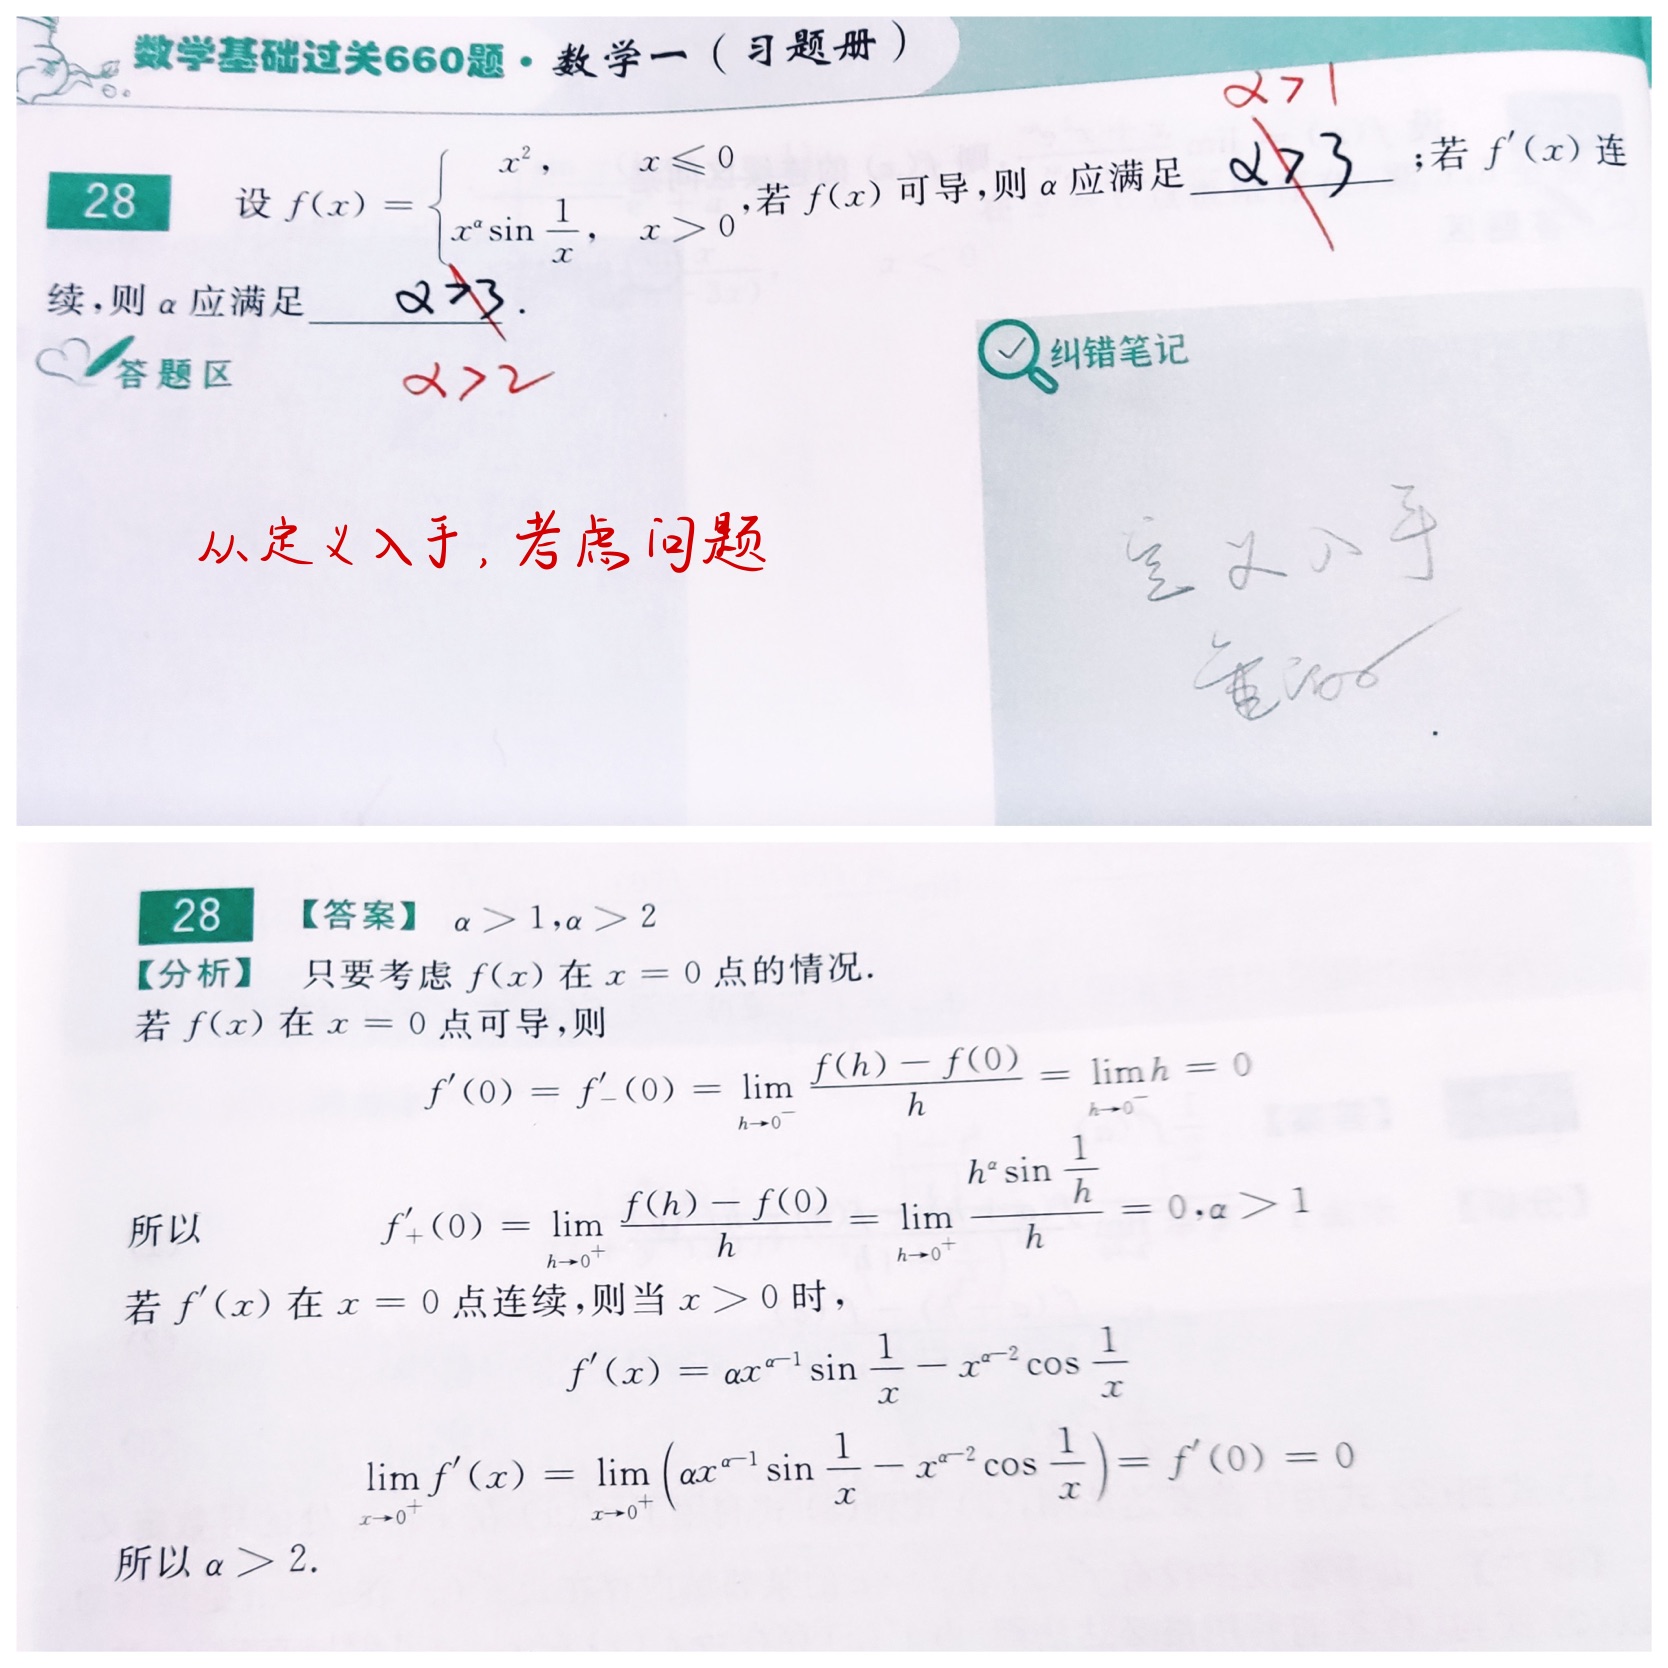 数学基础过关660题·数学一（习题册）
α>1
28 设 f(x) = { x², x ≤ 0
x^α sin 1/x, x > 0 ,若 f(x) 可导,则 α 应满足 α>3 ;若 f′(x) 连
续,则 α 应满足 α>3 .
α>2
答题区
纠错笔记
从定义入手, 考虑问题
定义入手
28 【答案】 α > 1,α > 2
【分析】 只要考虑 f(x) 在 x = 0 点的情况.
若 f(x) 在 x = 0 点可导,则
f′(0) = f′₋(0) = lim_{h→0⁻} (f(h) − f(0))/h = lim_{h→0⁻} h = 0
所以 f′₊(0) = lim_{h→0⁺} (f(h) − f(0))/h = lim_{h→0⁺} (h^α sin 1/h)/h = 0,α > 1
若 f′(x) 在 x = 0 点连续,则当 x > 0 时,
f′(x) = αx^{α−1} sin 1/x − x^{α−2} cos 1/x
lim_{x→0⁺} f′(x) = lim_{x→0⁺} (αx^{α−1} sin 1/x − x^{α−2} cos 1/x) = f′(0) = 0
所以 α > 2.